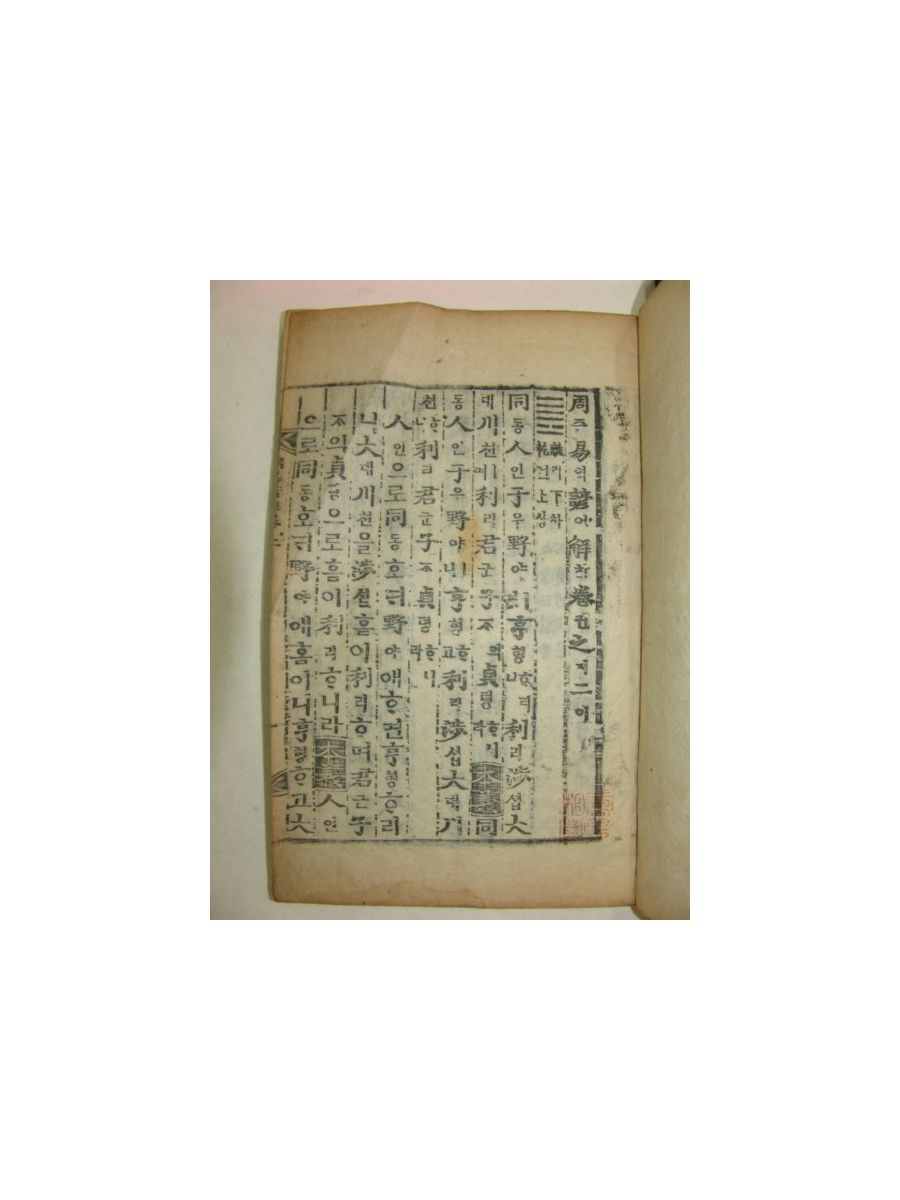 周쥬易역諺어解ᄒᆡ卷권之지二이
離리下하乾건上샹
同동人인于우野야亨형利리涉셥大
대川쳔利리君군子ᄌᆞ의貞뎡同
동人인于우野야ㅣ亨형ᄒᆞ고利리涉셥大대川
쳔ᄒᆞ니利리君군子ᄌᆞ貞뎡ᄒᆞ니라
人인으로同동호ᄃᆡ野야애ᄒᆞ면亨형ᄒᆞ리
니大대川쳔을涉셥홈이利리ᄒᆞ며君군子
ᄌᆞ의貞뎡으로홈이利리ᄒᆞ니라人인
으로同동호ᄃᆡ野야애홈이니亨형ᄒᆞ고大